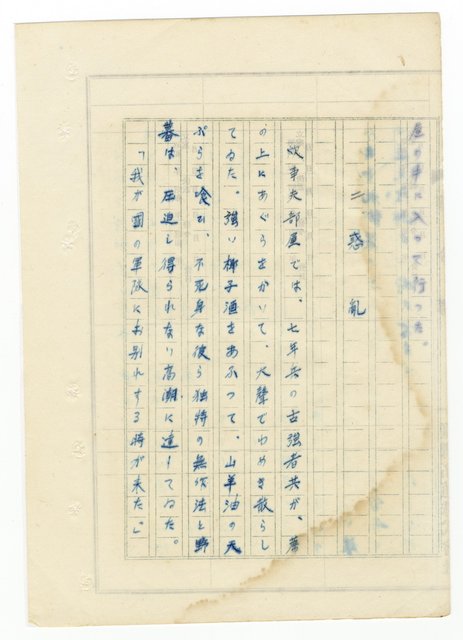 屋の中に入つて行つた。
二 惑乱
炊事夫部屋では、七年兵の古強者共が、蓆
の上にあぐらをかいて、大聲でわめき散らし
てゐた。強い椰子酒をあふつて、山羊油の天
ぷらを喰ひ、不死身な彼ら独特の無作法と野
暮は、圧迫し得られない高潮に達してゐた。
「我が国の軍隊にお別れする時が来た」